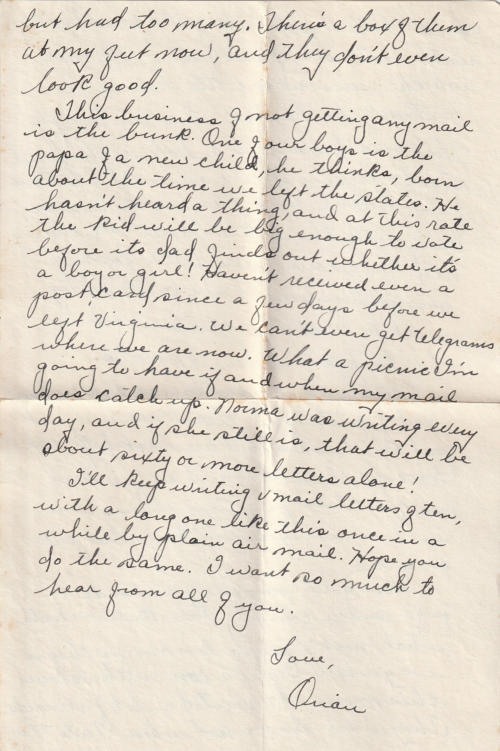 but had too many. There's a box of them
at my feet now, and they don't even
look good.
This business of not getting any mail
is the bunk. One of our boys is the
papa of a new child, he thinks, born
about the time we left the states. He
hasn't heard a thing, and at this rate
the kid will be big enough to vote
before its dad finds out whether it's
a boy or girl! Haven't received even a
post card since a few days before we
left Virginia. We can't even get telegrams
where we are now. What a picnic I'm
going to have if and when my mail
does catch up. Norma was writing every
day, and if she still is, that will be
about sixty or more letters alone!
I'll keep writing v mail letters often,
with a long one like this once in a
while by plain air mail. Hope you
do the same. I want so much to
hear from all of you.
Love,
Orian